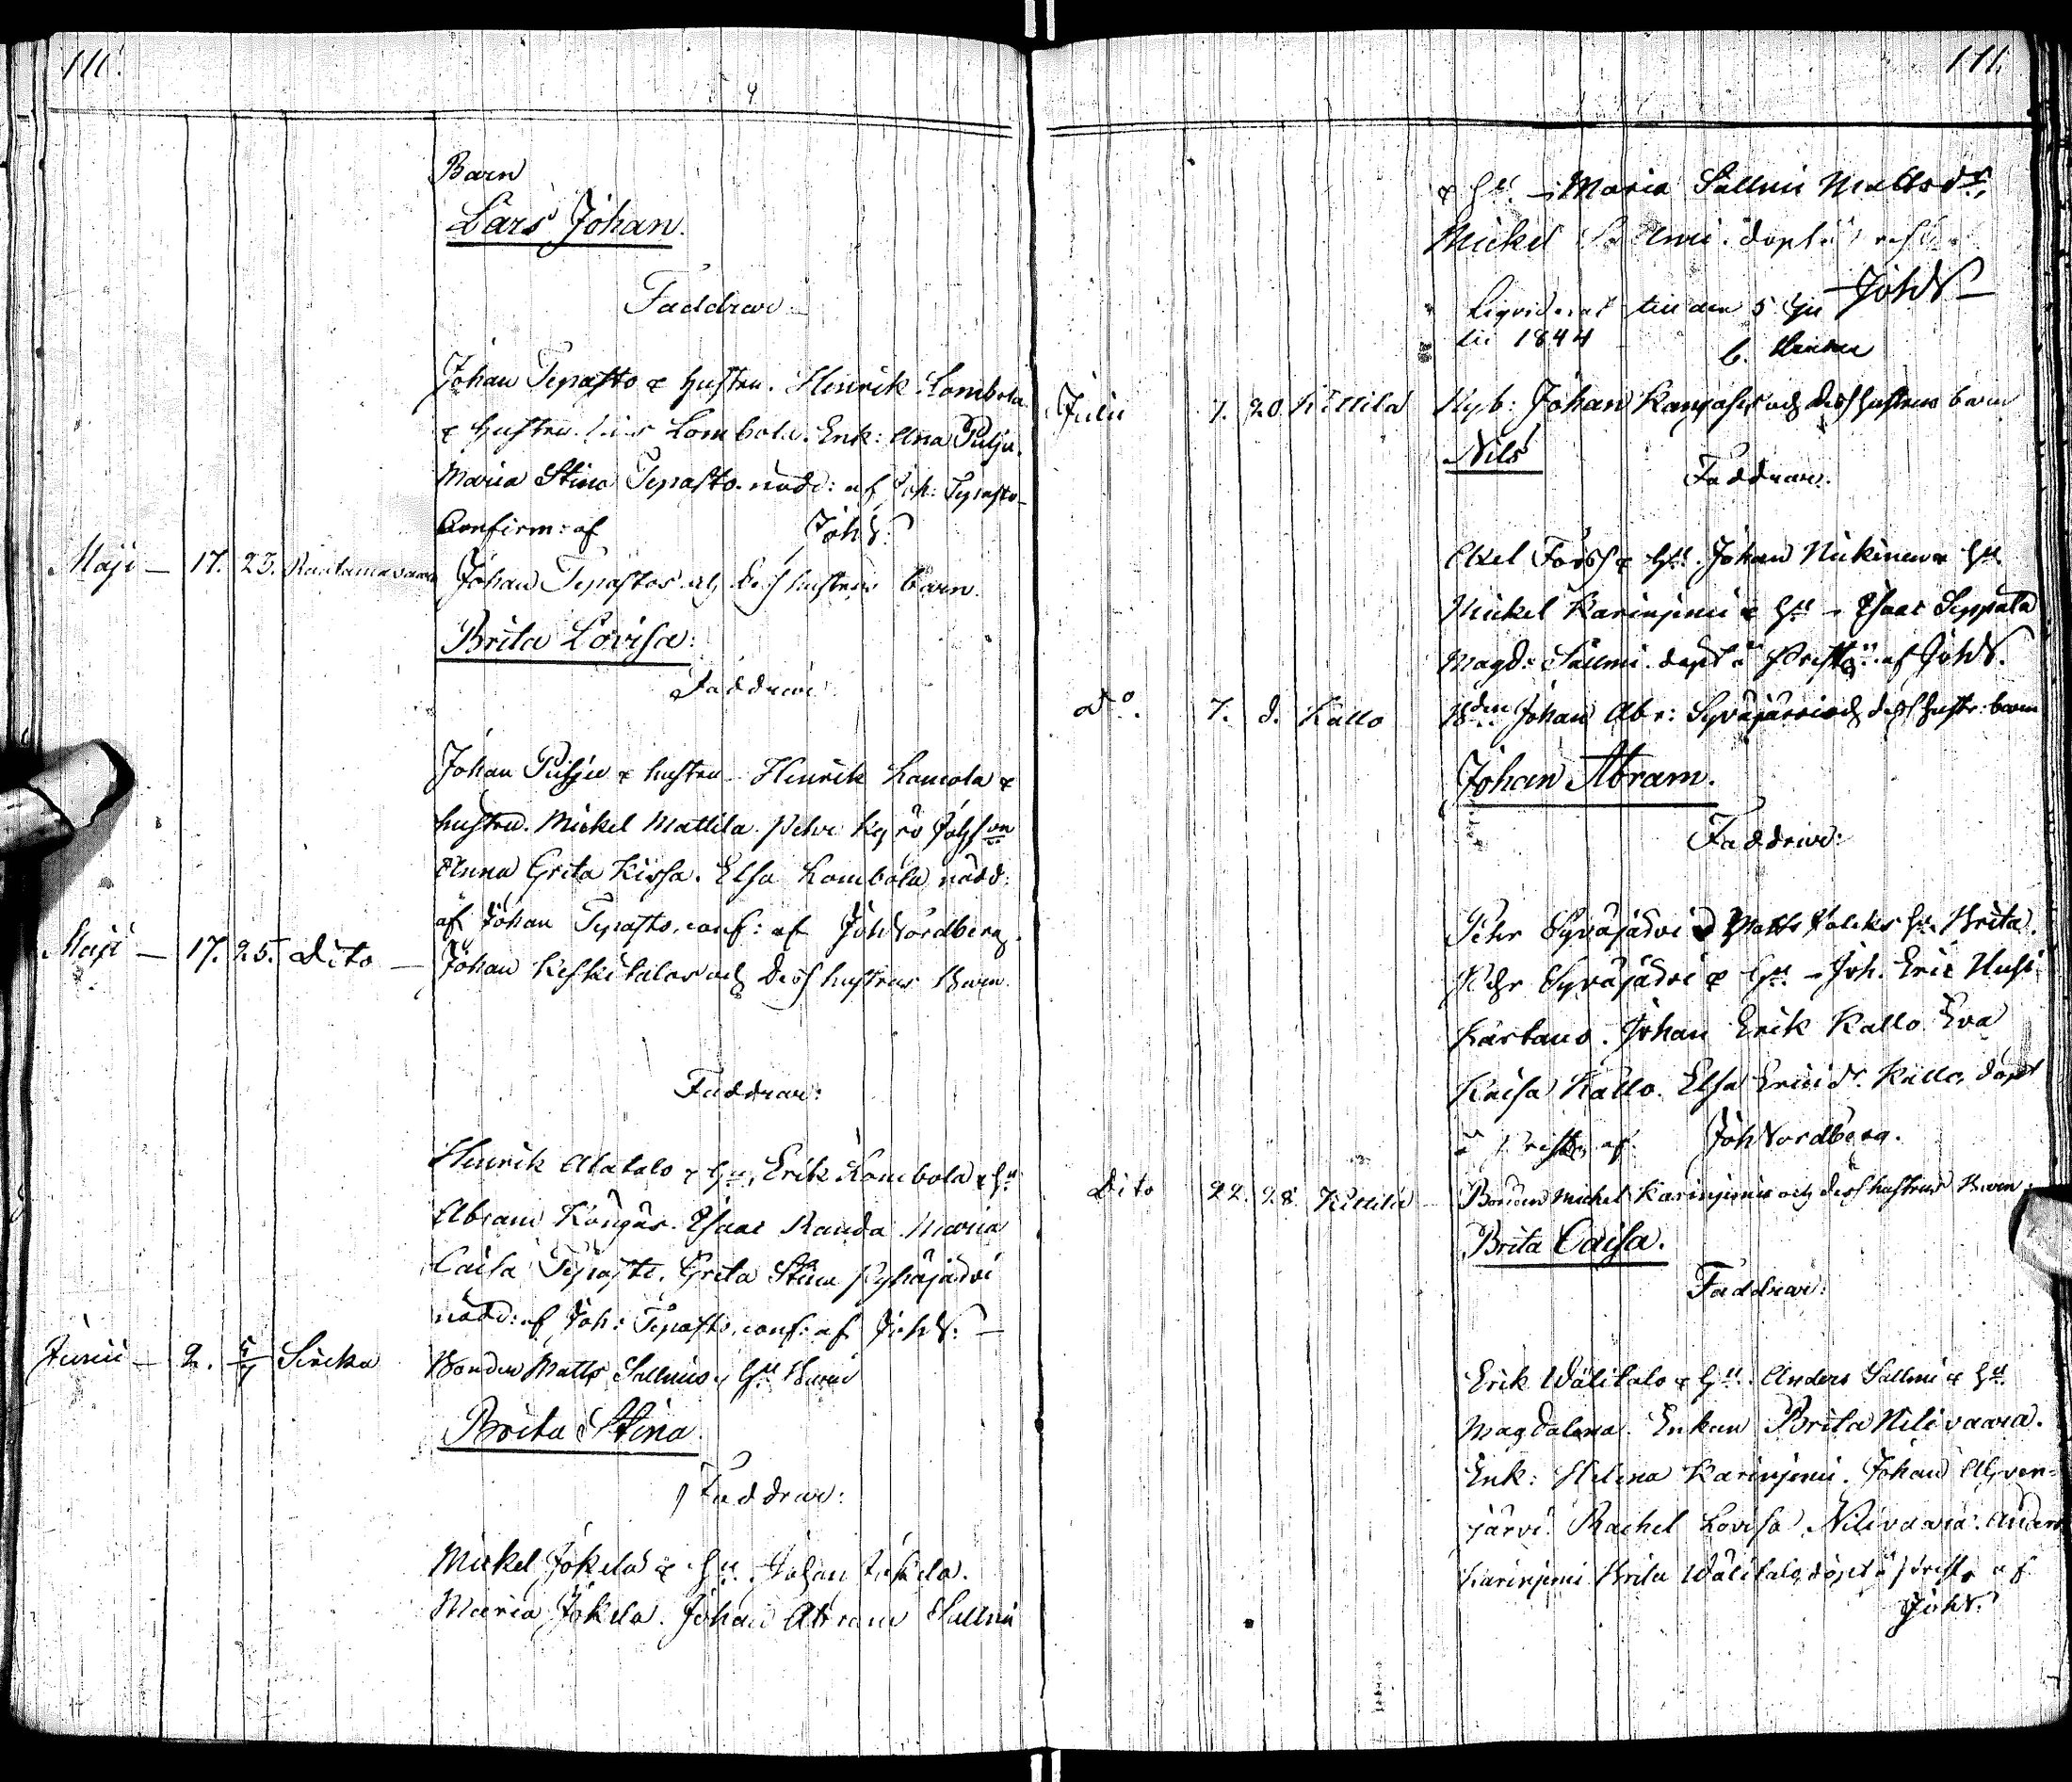 110.
Barn
Lars Johan.
Faddrar
Johan Tepasto & hustru. Henrik Lombola
& hustru. Lombola. Enk: Ana Pulju.
Maria Stina Tepasto. nödd: af Joh: Tepasto
Confirm: af JohN.
Maji — 17. 23. Rautuswaara Johan Tepastos och dess hustrus barn
Brita Lovisa:
Faddrar
Johan Pulju & hustru — Henrik Lomola &
hustru. Mickel Mattila. Petri Kyrö Johsson
Anna Greta Kissa. Elsa Lombola nödd:
af Johan Tepasto, conf: af JohNordberg.
Maji — 17. 25. Dito — Johan Keskitalos och dess hustrus Barn.
Faddrar:
Henrik Alatalo & Hu, Erik Lombola & Hu
Abram Kongäs. Isaac Rauda Maria
Caisa Tepasto. Greta Stina Pyhäjärvi
nödd: af Joh: Tepasto, conf: af JohN: —
Junii — 2. Sircka Bonden Matts Sallmis & Hu Barn
Brita Stina.
Faddrar:
Mickel Jokela & Hu. Johan Jokela.
Maria Jokela. Johan Abram Sallmi
111.
& Hu. — Maria Sallmi Mattsdr,
Mickel Sallmi. döpt
JohN
Liqviderat till den 5
til 1844
Julii 7. 20. Kittilä Nyb: Johan Kangosis och dess hustrus barn
Nils
Faddrar.
Axel Forss & Hu. Johan Nickinen & Hu.
Mickel Karinjemi & Hu — Isaac Seppälä
Magd: Sallmi. döpt å Prestg: af JohN.
Do. 7. d. Kallo Bden Johan Abr: Syväjärvi och dess hustr: barn
Johan Abram.
Faddrar:
Pehr Syväjärvi Matts Hu. Brita.
Pehr Syväjärvi & Hu. — Joh. Eric Husi
Kartano. Johan Erik Kallo Eva
Kaisa Kallo. Elsa Ericidr. Kallo, döpt
å Prestg. af JohNordberg.
Dito 22. 28. Kittilä Bonden Mickel Karinjemis och dess hustrus Barn
Brita Caisa.
Faddrar:
Erik Wälitalo & Hu. Anders Sallmi & Hu
Magdalena. Enkan Brita Nilivaara.
Enk: Helena Karinjemi. Johan
järvi. Rachel Lovisa Nilivaara. Anders
Karinjemi Brita Wälitalo, döpt å Prestg af
JohN.